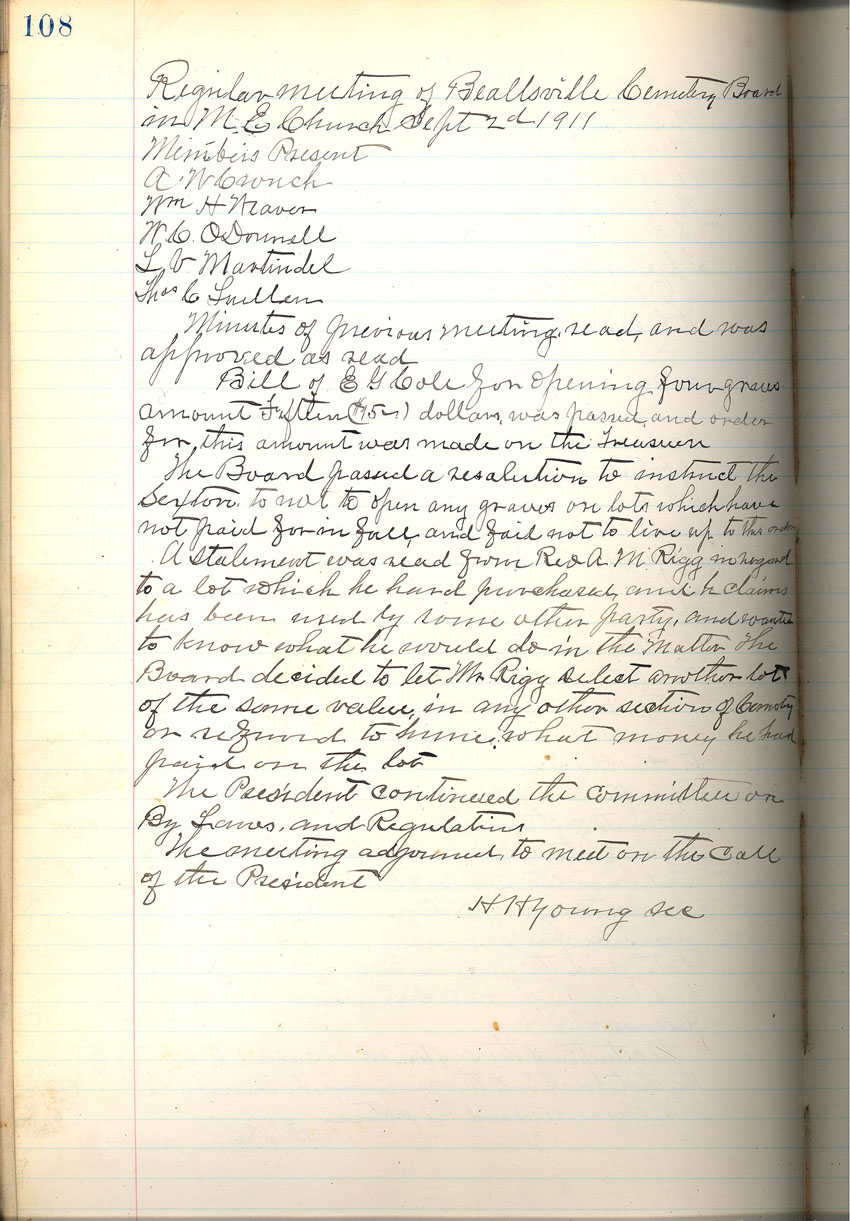 108
Regular meeting of Beallsville Cemetery Board
in M. E. Church Sept 2d 1911
Members Present
A W Crouch
Wm H Weaver
W. C. ODonnell
L. V Martindel
Thos C
Minutes of previous meeting read, and was
approved as read
Bill of E G Cole for opening four graves
amount Fifteen ($15) dollars, was passed, and order
for this amount was made on the Treasurer
The Board passed a resolution to instruct the
Sexton to not to open any graves on lots which have
not paid for in full, and fail not to live up to this order
A statement was read from Rev A. M. Rigg in regard
to a lot which he had purchased, and he claims
has been used by some other party, and wanted
to know what he would do in the Matter The
Board decided to let Mr Rigg select another lot
of the same value, in any other section of Cemetery
or refund to hime, what money he had
paid on the lot
The President continued the committee on
By Laws, and Regulations
The meeting adjourned, to meet on the Call
of the President
H H Young sec